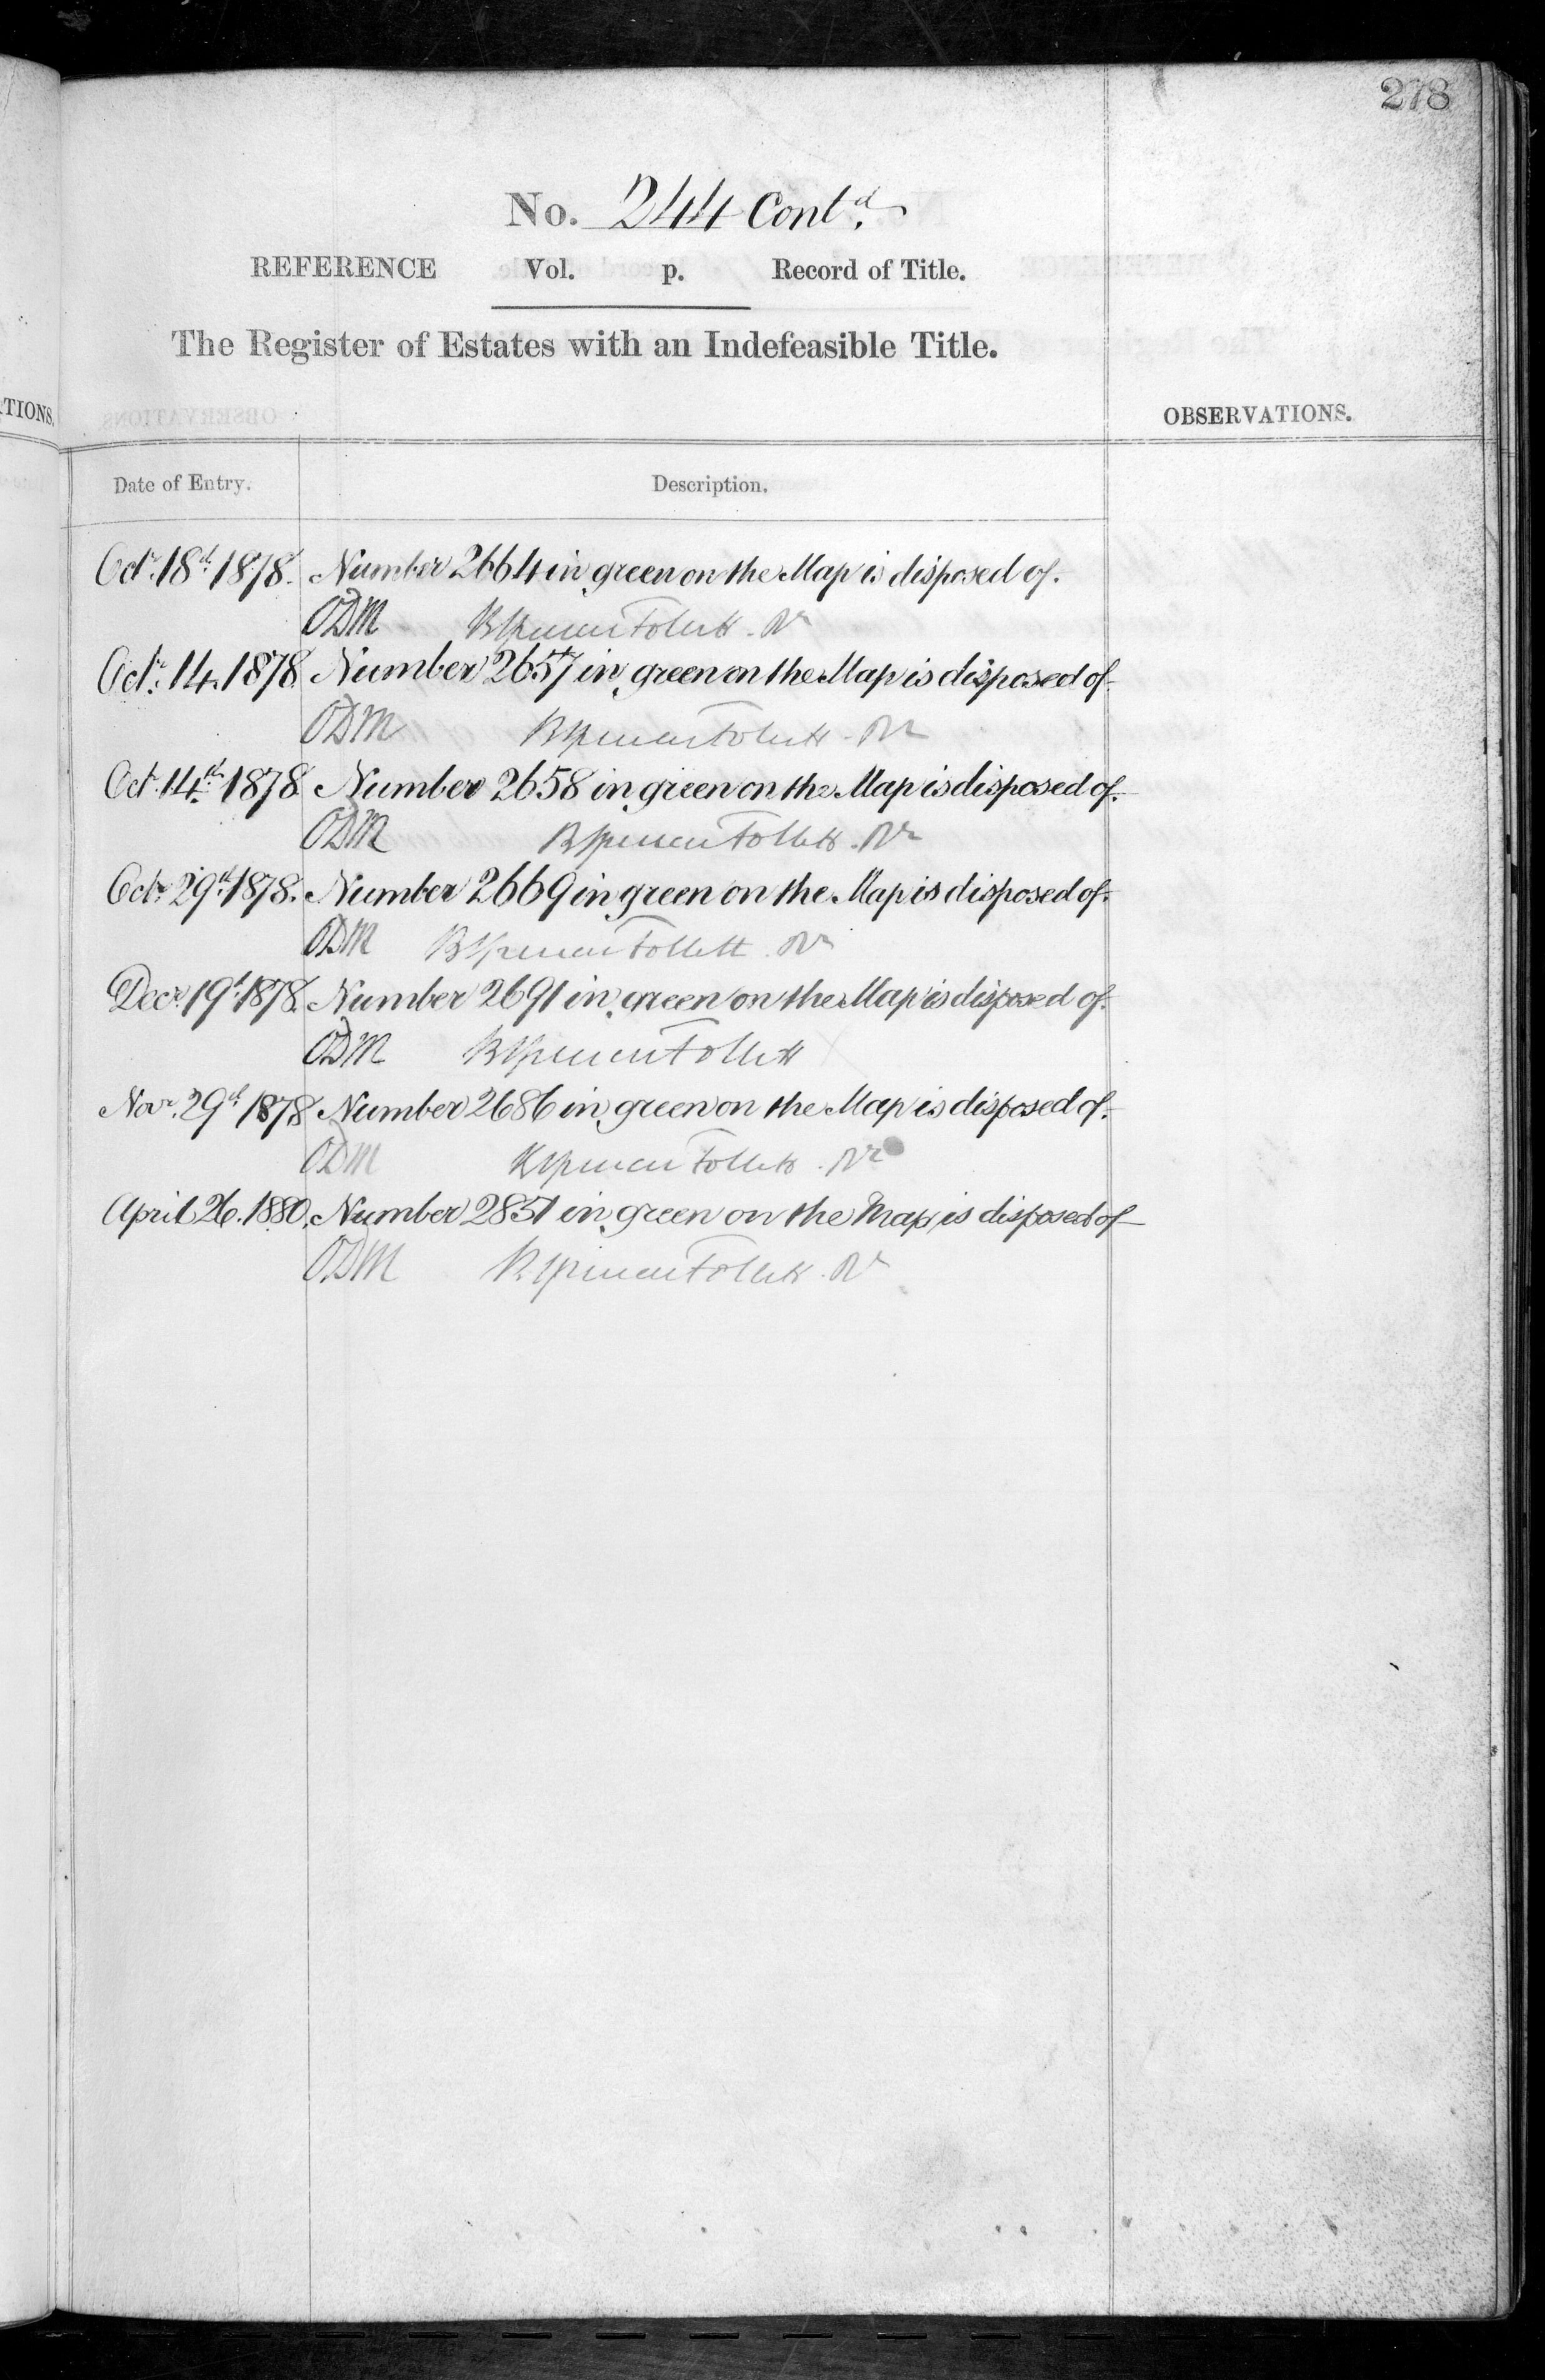 278
No. 244 Contd.
REFERENCE Vol. p. Record of Title.
The Register of Estates with an Indefeasible Title.
TIONS.
OBSERVATIONS.
Date of Entry. Description.
Octr. 18th. 1878. Number 2664 in green on the Map is disposed of.
ODM Follett
Octr. 14. 1878 Number 2657 in green on the Map is disposed of
ODM Follett
Octr. 14th. 1878 Number 2658 in green on the Map is disposed of.
ODM Follett
Octr. 29th. 1878. Number 2669 in green on the Map is disposed of.
ODM Follett
Decr. 19th. 1878. Number 2691 in green on the Map is disposed of.
ODM Follett
Novr. 29th 1878 Number 2686 in green on the Map is disposed of.
ODM Follett
April 26. 1880. Number 2851 in green on the Map is disposed of
ODM Follett